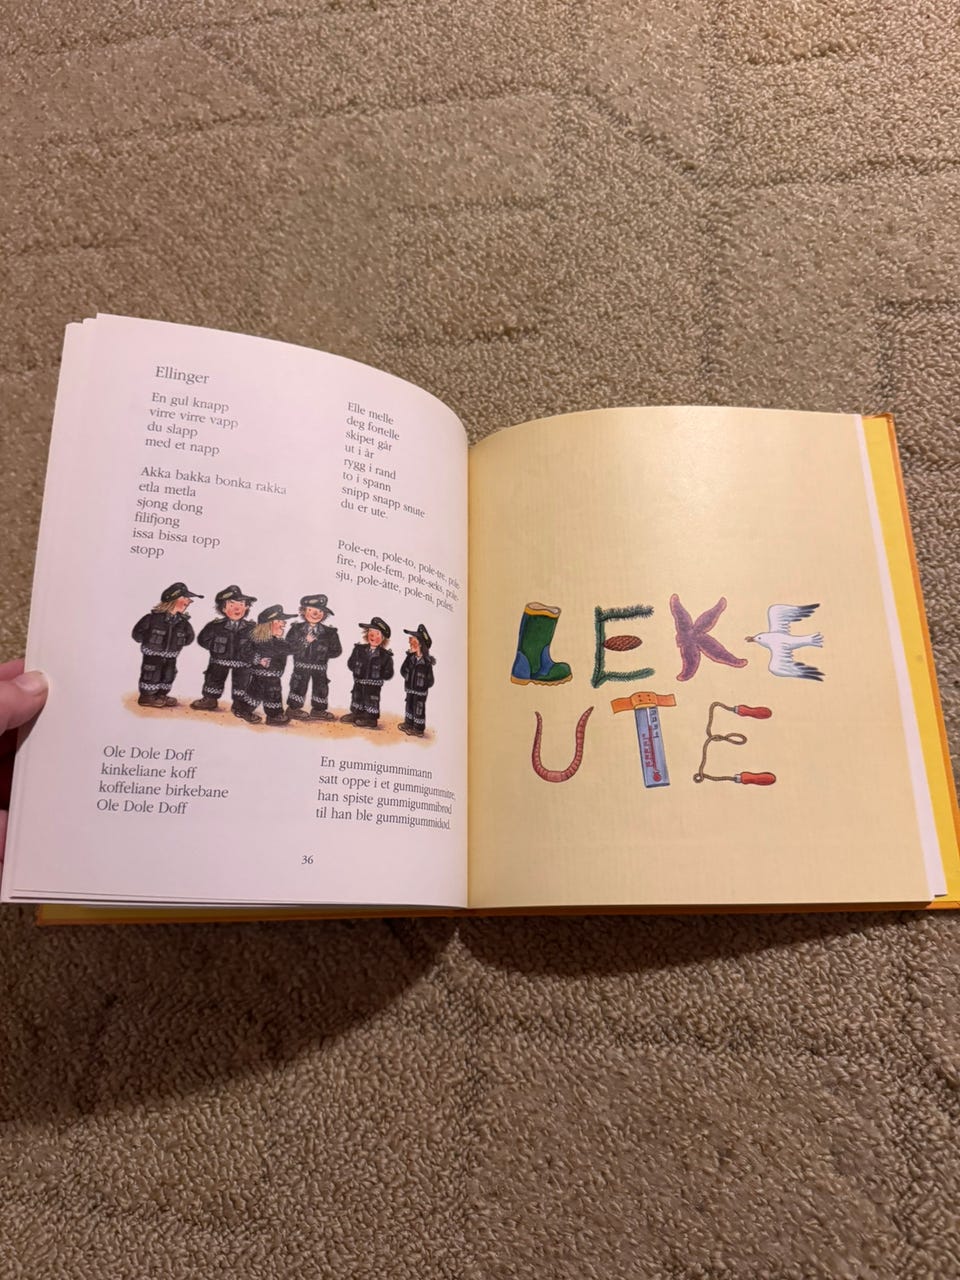 Ellinger
En gul knapp
virre virre vapp
du slapp
med et napp
Akka bakka bonka rakka
etla metla
sjong dong
filifjong
issa bissa topp
stopp
Elle melle
deg fortelle
skipet går
ut i år
rygg i rand
to i spann
snipp snapp snute
du er ute.
Pole-en, pole-to, pole-tre, pole-
fire, pole-fem, pole-seks, pole-
sju, pole-åtte, pole-ni, poleti.
Ole Dole Doff
kinkeliane koff
koffeliane birkebane
Ole Dole Doff
En gummigummimann
satt oppe i et gummigummitre,
han spiste gummigummibrød
til han ble gummigummidød.
36
LEKE
UTE